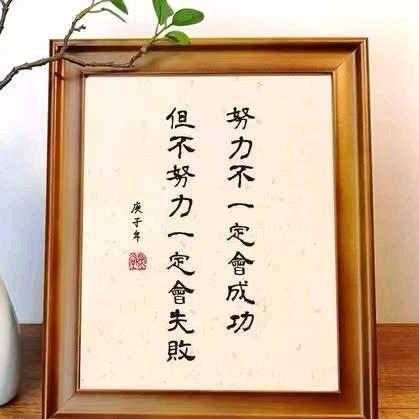 努力不一定會成功
但不努力一定會失敗
庚子年